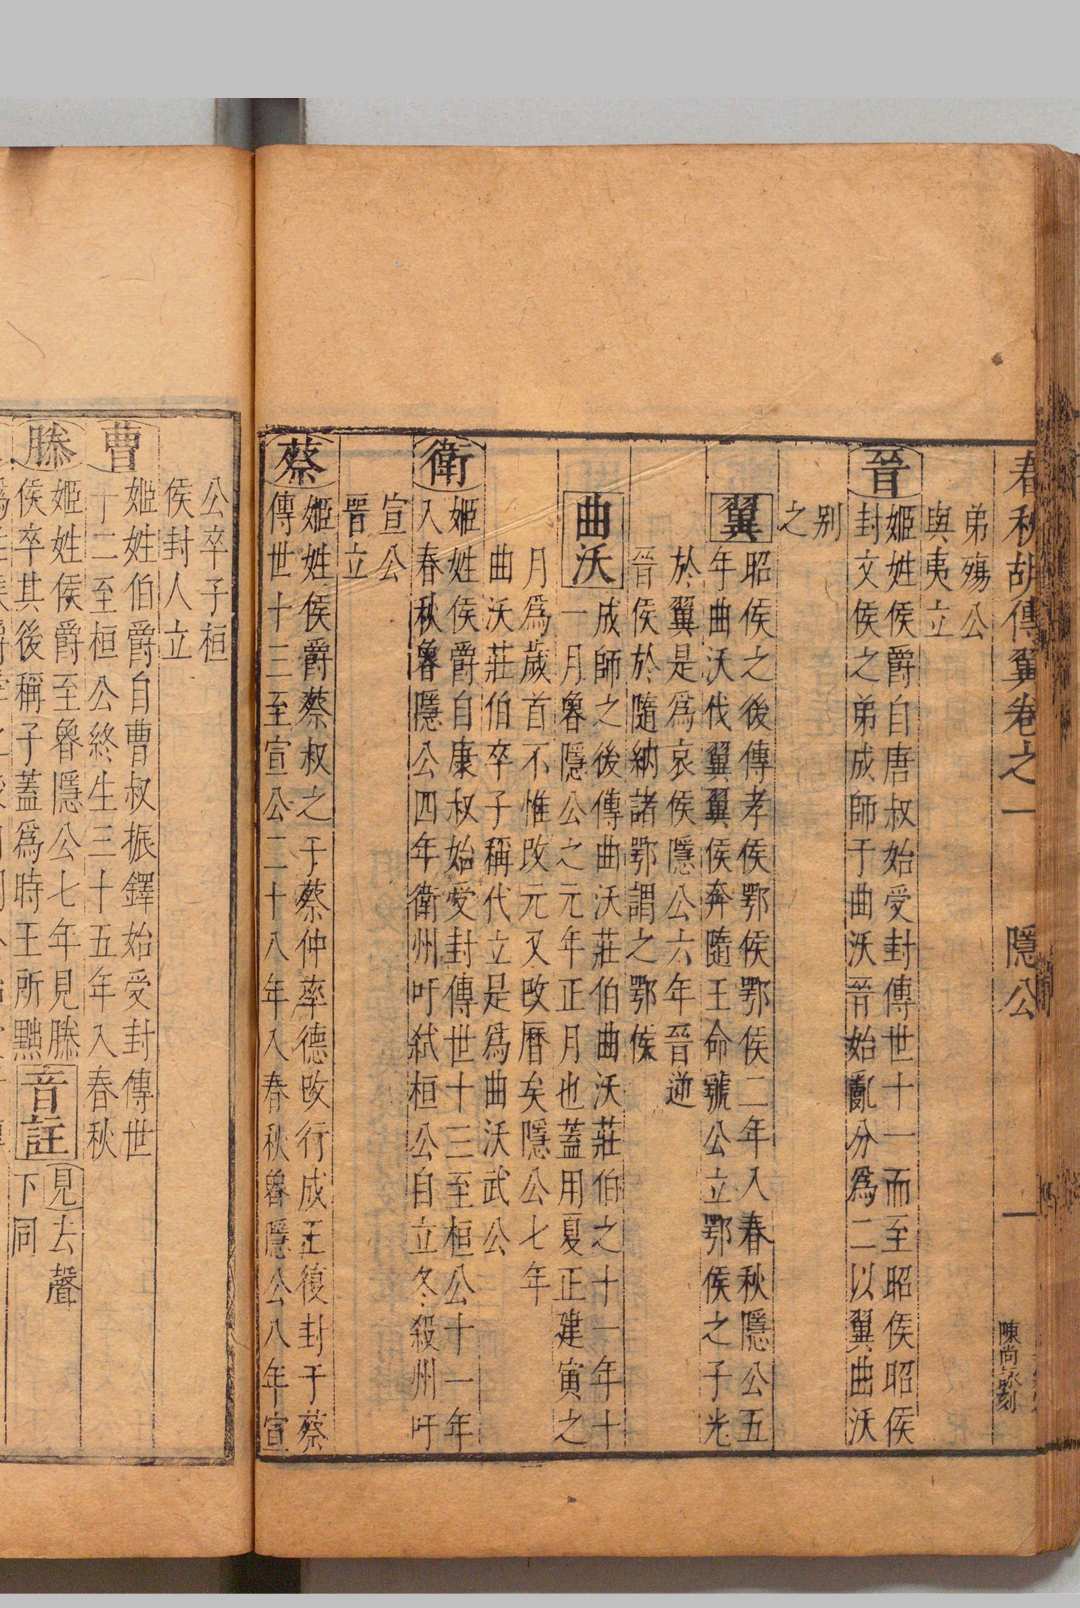 春秋胡傳翼卷之一 隱公 一 陳尚泳刻
弟殤公
與夷立
晉 姬姓侯爵自唐叔始受封傳世十一而至昭侯昭侯
封文侯之弟成師于曲沃晉始亂分爲二以翼曲沃
別
之
翼 昭侯之後傳孝侯鄂侯鄂侯二年入春秋隱公五
年曲沃伐翼翼侯奔隨王命虢公立鄂侯之子光
於翼是爲哀侯隱公六年晉逆
晉侯於隨納諸鄂謂之鄂侯
曲沃 成師之後傳曲沃莊伯曲沃莊伯之十一年十
一月魯隱公之元年正月也蓋用夏正建寅之
月爲歲首不惟改元又改曆矣隱公七年
曲沃莊伯卒子稱代立是爲曲沃武公
衛 姬姓侯爵自康叔始受封傳世十三至桓公十一年
入春秋魯隱公四年衛州吁弒桓公自立冬殺州吁
宣公
晉立
蔡 姬姓侯爵蔡叔之于蔡仲率德改行成王復封于蔡
傳世十三至宣公二十八年入春秋魯隱公八年宣
公卒子桓
侯封人立
曹 姬姓伯爵自曹叔振鐸始受封傳世
十二至桓公終生三十五年入春秋
滕 姬姓侯爵至魯隱公七年見滕
侯卒其後稱子蓋爲時王所黜 音註 見去聲
下同